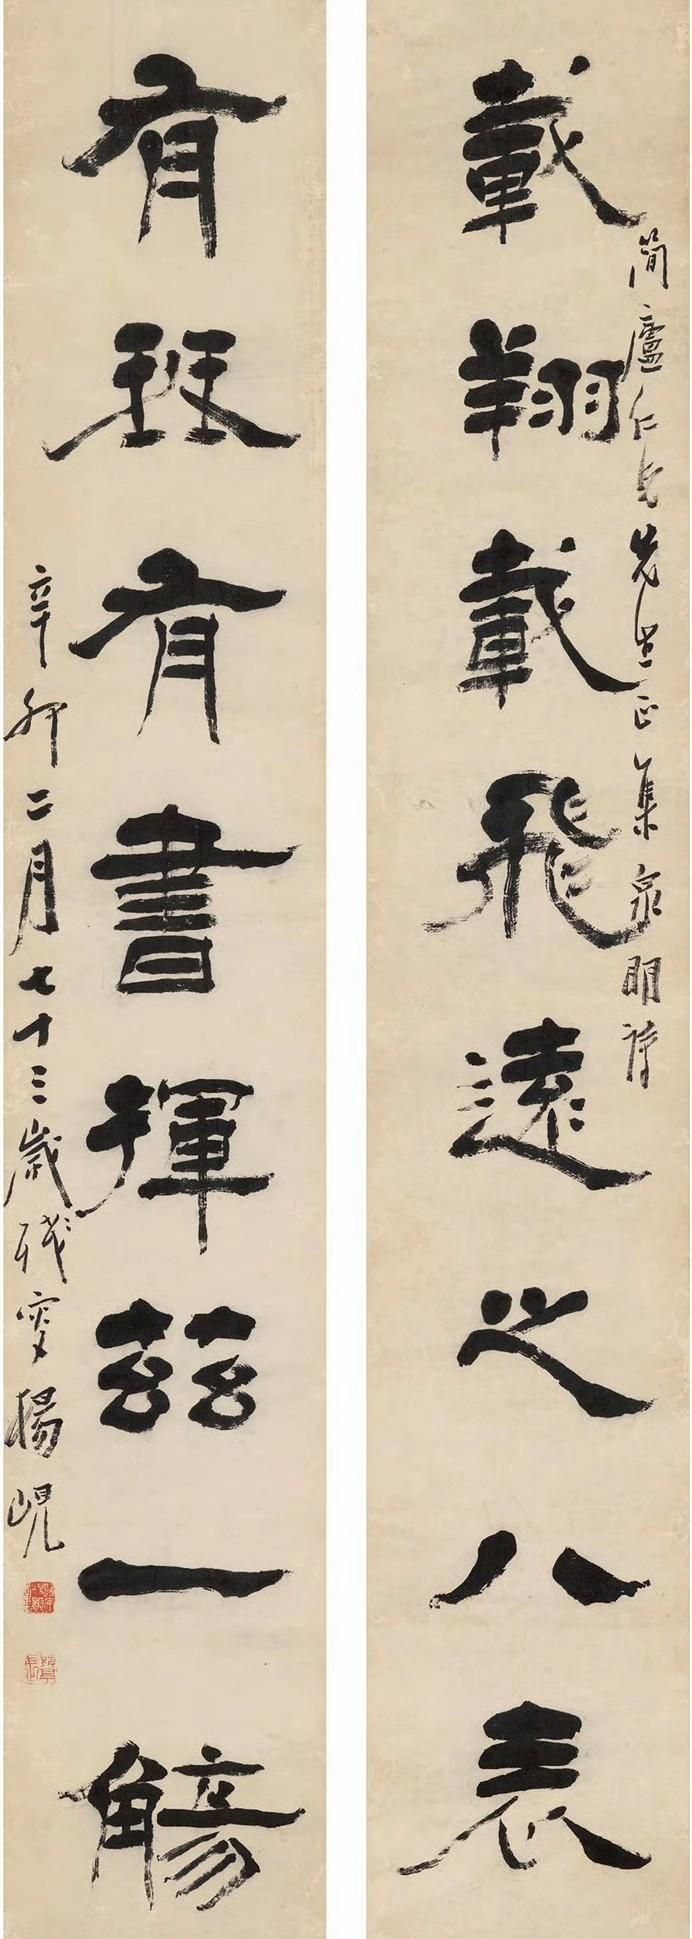 簡廬仁兄先生正集泉明詩
載翔載飛遠之八表
有琴有書揮茲一觴
辛卯二月七十三歲殘叟楊峴